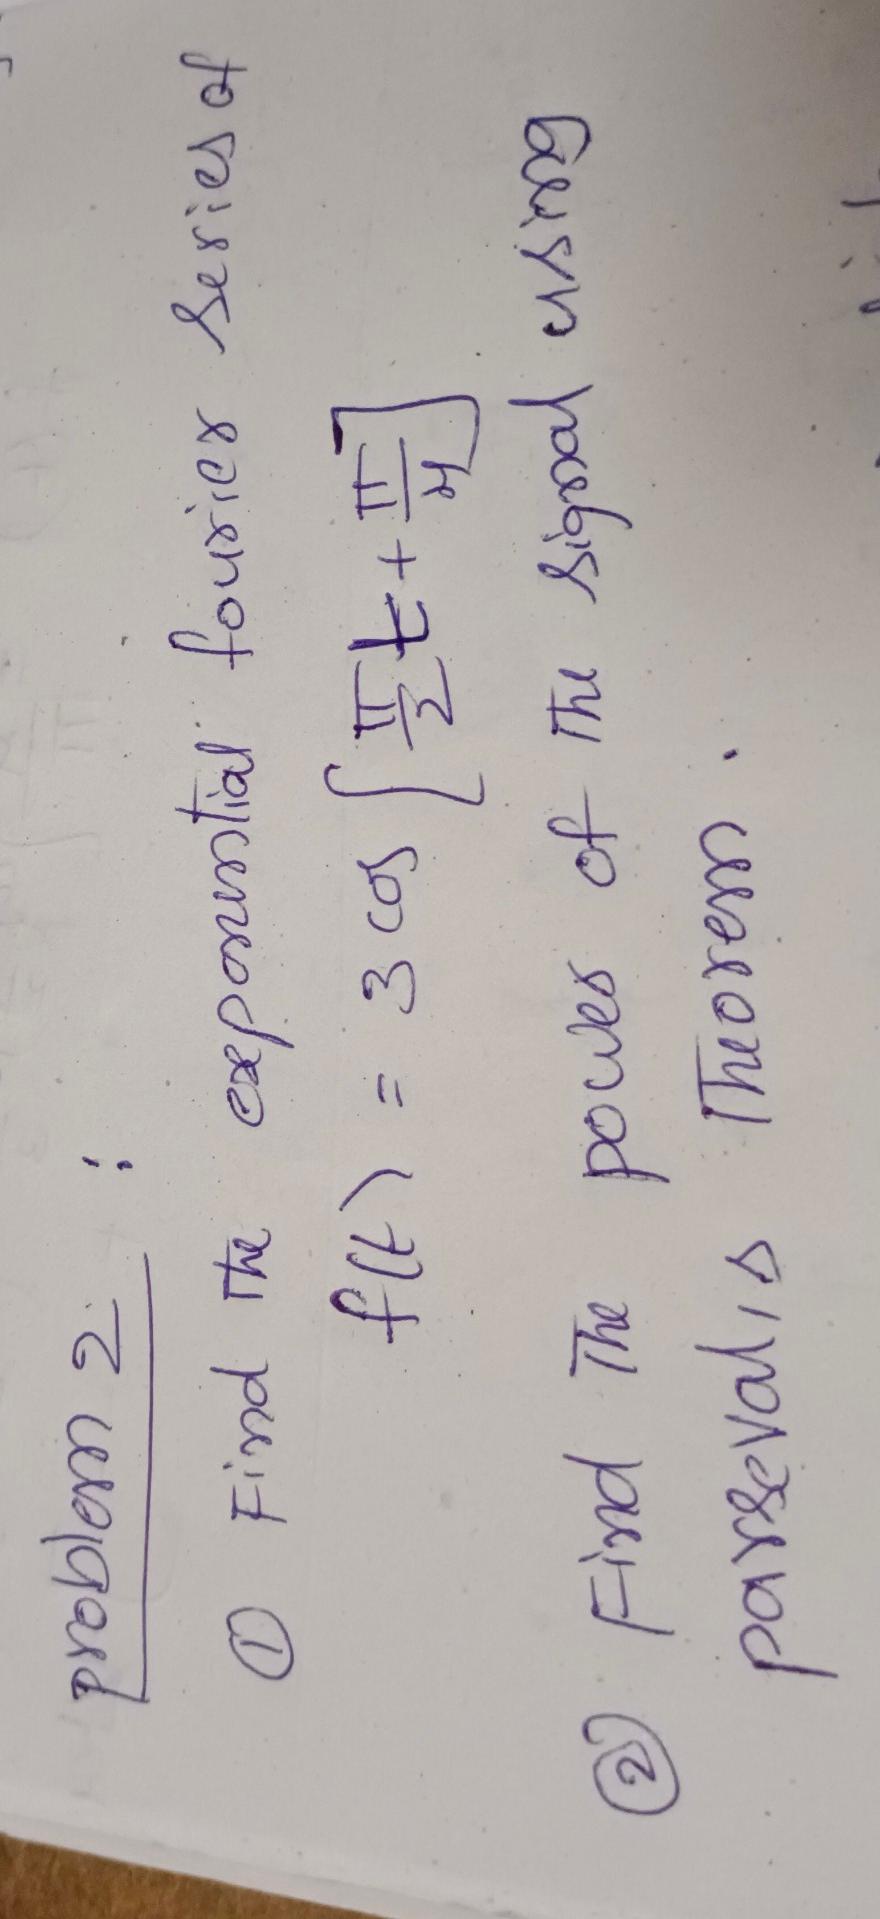 problem 2 :
① Find The exponential fourier series of
f(t) = 3 cos [π/2 t + π/4]
② Find The power of The signal using
parseval's Theorem.